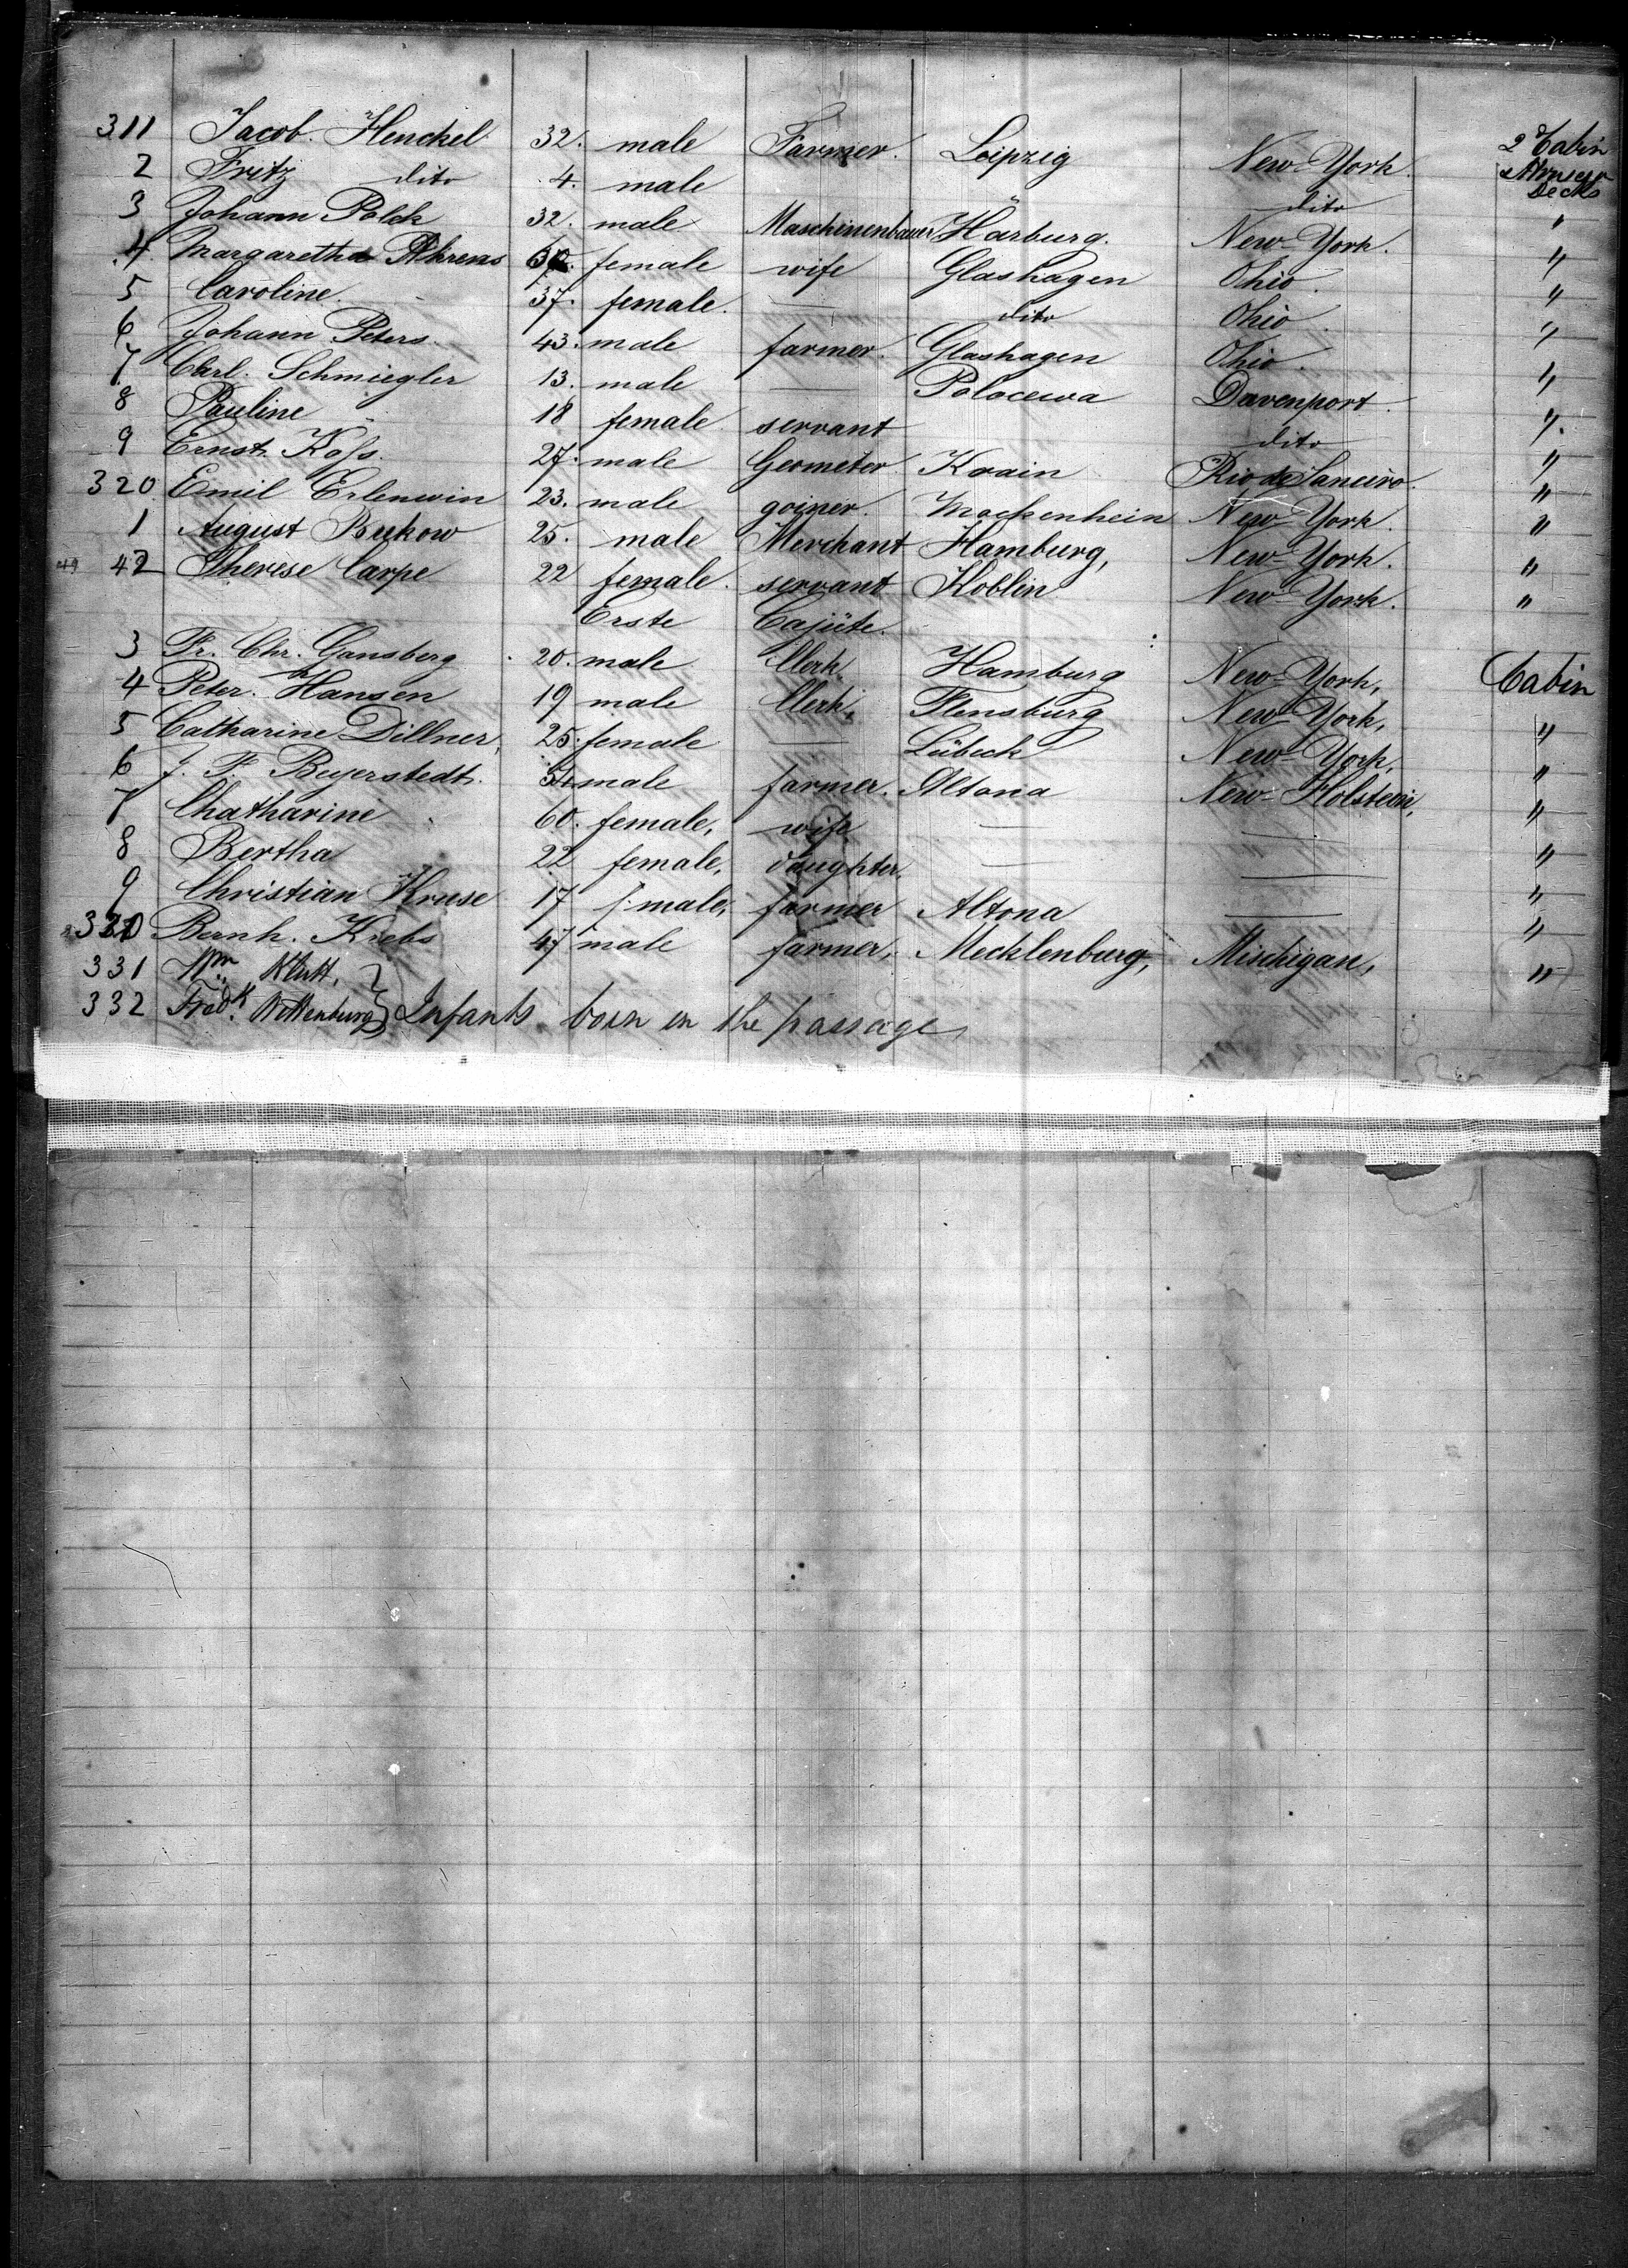 311 Jacob. Henckel 32. male Farmer. Leipzig New-York. 2 Cabin
2 Fritz dito 4. male dito Decks
3 Johann Polck 32. male Maschinenbauer Harburg. New-York. "
4 Margaretha Ahrens female wife Glashagen Ohio. "
5 Caroline. 37. female. — dito Ohio. "
6 Johann Peters. 43. male farmer. Glashagen Ohio. "
7 Carl. Schmiegler 13. male — Polocewa Davenport. "
8 Pauline " 18 female servant dito "
9 Ernst. Koſs. 27. male Geometer Krain Rio de Janeiro. "
320 Emil Erlenwin 23. male goiner. Mackenhein New-York. "
1 August Bukow 25. male Merchant Hamburg, New-York. "
42 Therese Carpe 22 female. servant Koblin New-York. "
Erste Cajüte.
3 Fr. Chr. Gansberg 20. male Clerk Hamburg New-York, Cabin
4 Peter. Hansen 19 male Clerk. Flensburg New-York, "
5 Catharine Dillner, 25. female — Lübeck New-York, "
6 J. F. Beyerstedt. male farmer. Altona New-Holstein, "
7 Chatharine " 60. female, wife — — "
8 Bertha 22 female, daughter. — — "
9 Christian Kruse 17 male, farmer Altona — "
330 Bernh. Krebs 47 male farmer, Mecklenburg, Mischigan, "
331 Wm Klutt, }
332 Fredk. Wittenburg } Infants born on the passage